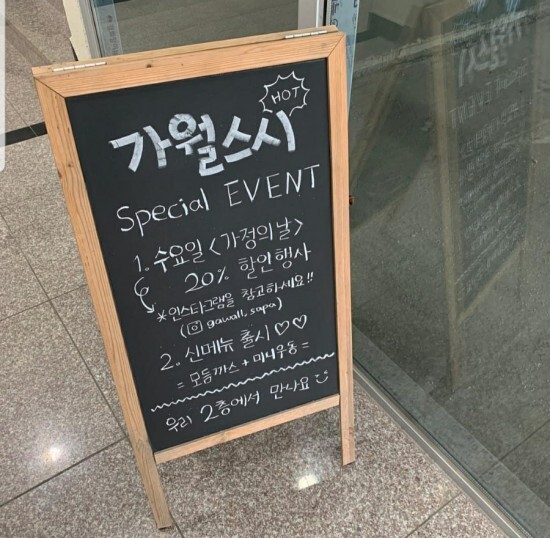 HOT
가월스시
Special EVENT
1. 수요일 <가정의날>
20% 할인행사
*인스타그램을 참고하세요!!
(gawall_sapa)
2. 신메뉴 출시 ♡♡
= 모듬까스 + 미니우동 =
우리 2층에서 만나요